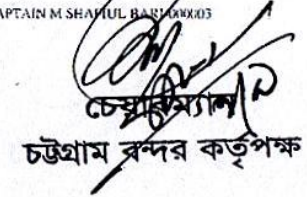 CAPTAIN M SHAFIUL BARI 000003
চেয়ারম্যান
চট্টগ্রাম বন্দর কর্তৃপক্ষ